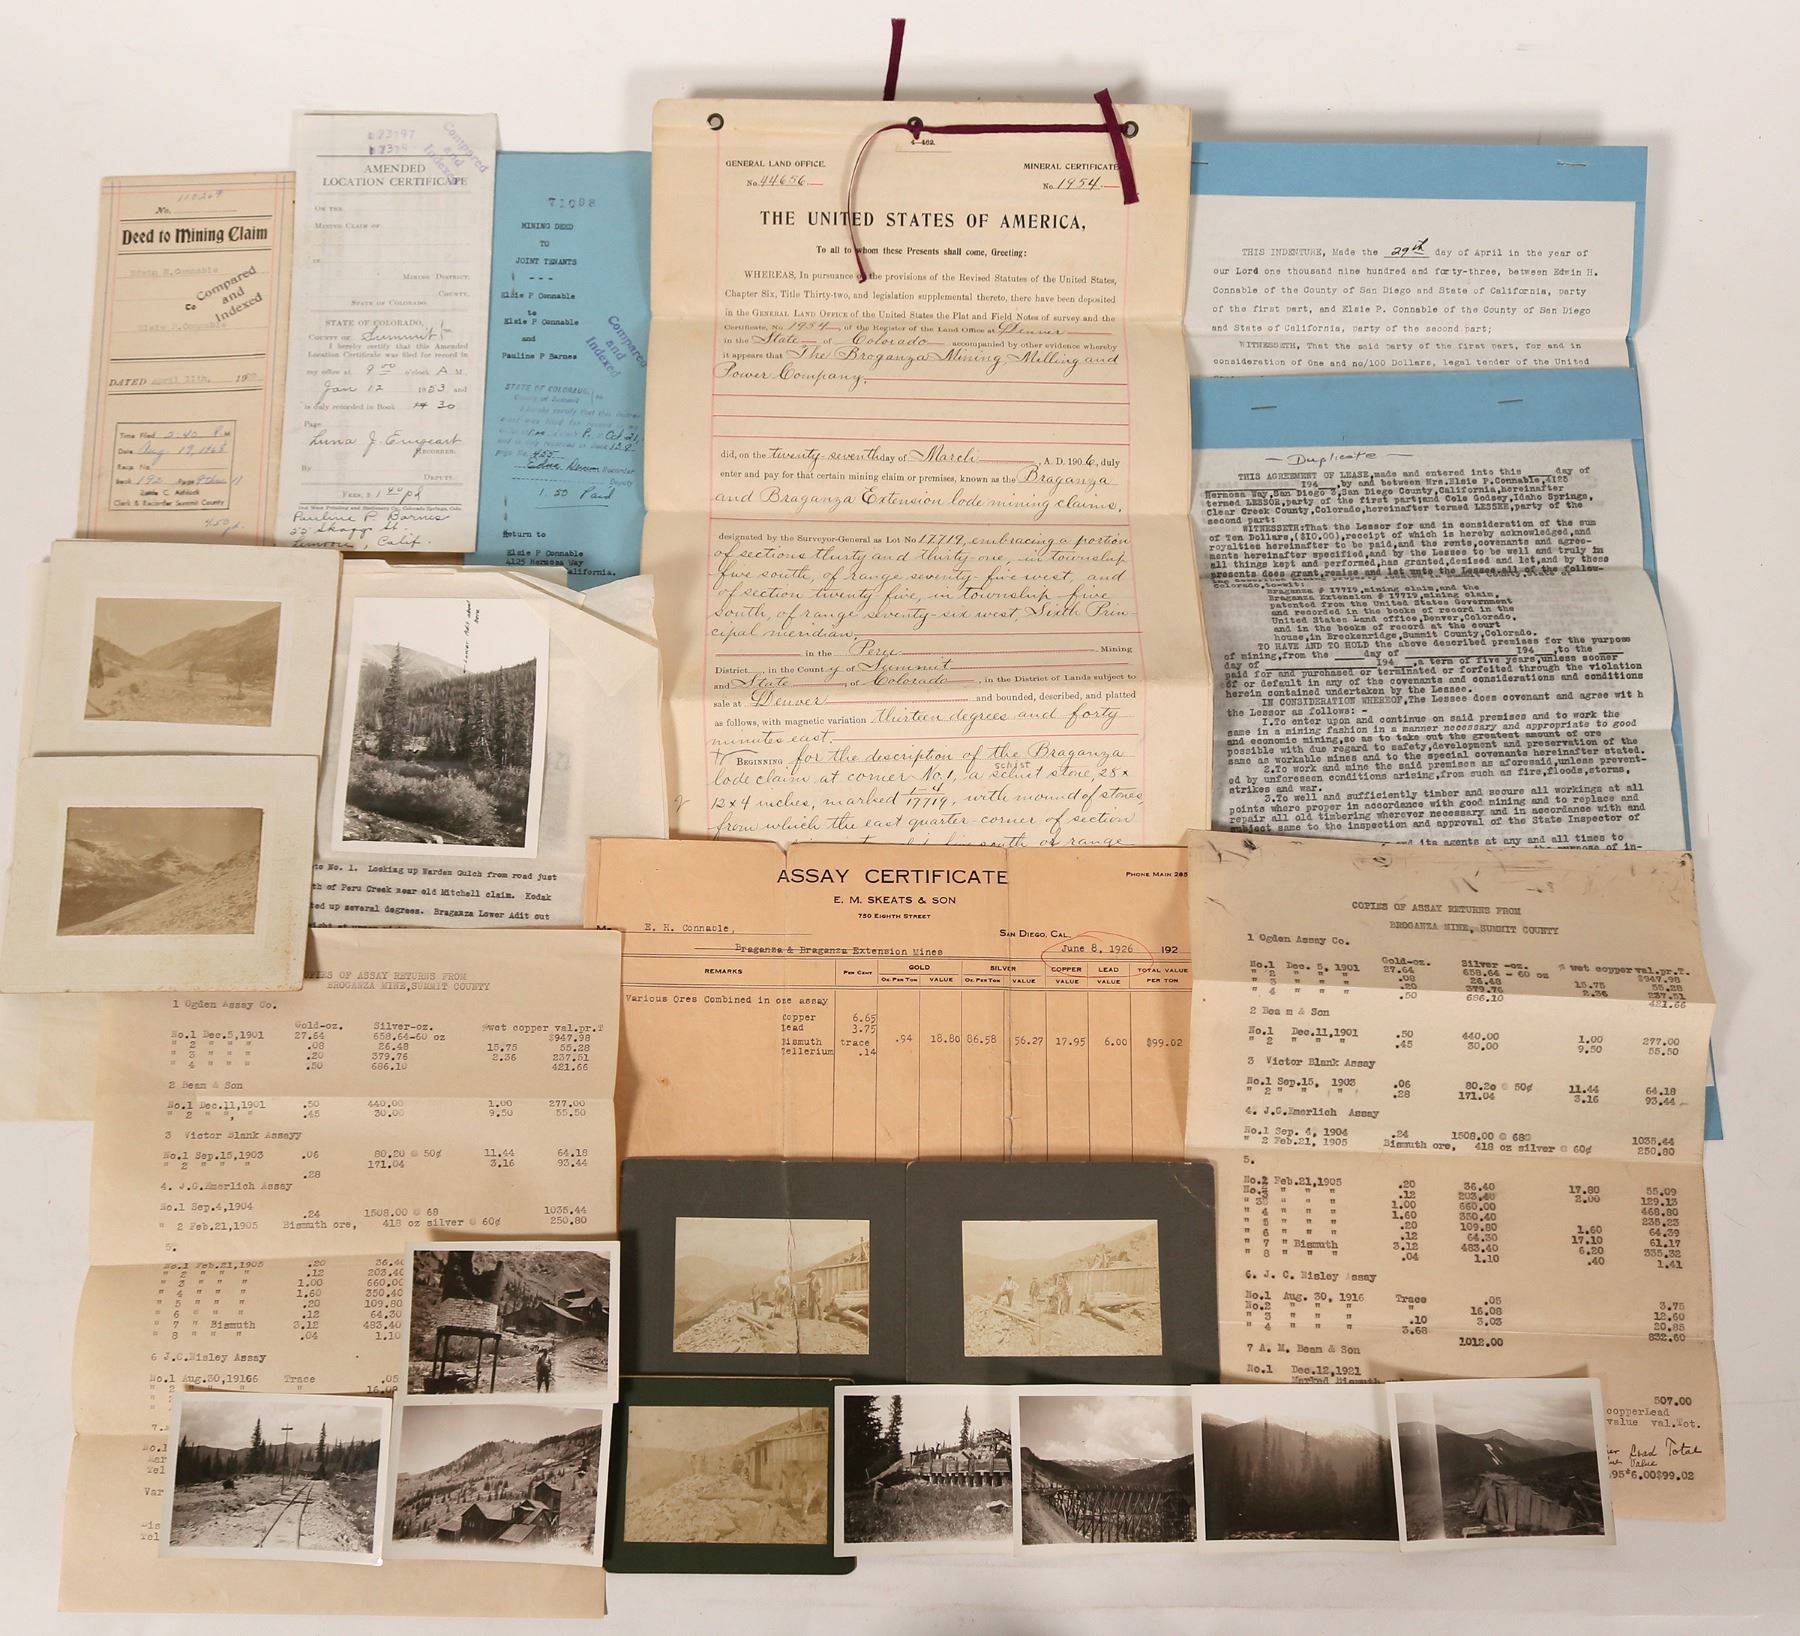 No. 110269
Deed to Mining Claim
Edwin H. Connable
to
Elsie P. Connable
Compared
and
Indexed
DATED April 11th, 19
Time Filed 2:40 P. M
Date Aug. 19, 1968
Recp. No.
Book 192 Page
Clerk & Recorder Summit County
4.50 pd.
#73797
Compared
and
Indexed
AMENDED
LOCATION CERTIFICATE
ON THE
MINING CLAIM OF
IN
MINING DISTRICT,
COUNTY,
STATE OF COLORADO.
STATE OF COLORADO,
COUNTY OF Summit
I hereby certify that this Amended
Location Certificate was filed for record in
my office at 9 00 o'clock A M.,
Jan 12 1953 and
is duly recorded in Book 30
Page
RECORDER.
By
DEPUTY.
FEES, $ 1 40 pd
Pauline P. Barnes
55 Skagg St.
Lemoore, Calif.
71098
MINING DEED
TO
JOINT TENANTS
- - -
Elsie P Connable
to
Elsie P. Connable
and
Pauline P Barnes
Compared
and
Indexed
STATE OF COLORADO,
County of Summit
page No. 455
Recorder
Deputy
1.50 Paid
Return to
Elsie P Connable
4125 Hermosa Way
California.
4-462.
GENERAL LAND OFFICE.
No. 44656.
MINERAL CERTIFICATE
No. 1954.
THE UNITED STATES OF AMERICA,
To all to whom these Presents shall come, Greeting:
WHEREAS, In pursuance of the provisions of the Revised Statutes of the United States,
Chapter Six, Title Thirty-two, and legislation supplemental thereto, there have been deposited
in the GENERAL LAND OFFICE of the United States the Plat and Field Notes of survey and the
Certificate, No. 1954, of the Register of the Land Office at Denver
in the State of Colorado accompanied by other evidence whereby
it appears that The Broganza Mining Milling and
Power Company,
did, on the twenty-seventh day of March, A. D. 1906, duly
enter and pay for that certain mining claim or premises, known as the Braganza
and Braganza Extension lode mining claims,
designated by the Surveyor-General as Lot No. 17719, embracing a portion
of sections thirty and thirty-one, in township
five south, of range seventy-five west, and
of section twenty-five, in township five
south, of range seventy-six west, Sixth Prin-
cipal meridian,
in the Peru Mining
District, in the County of Summit
and State of Colorado, in the District of Lands subject to
sale at Denver and bounded, described, and platted
as follows, with magnetic variation thirteen degrees and forty
minutes east.
BEGINNING for the description of the Braganza
schist
lode claim at corner No. 1, a schist stone, 28 x
12 x 4 inches, marked 1-4/17719, with mound of stones,
from which the east quarter-corner of section
south of range
THIS INDENTURE, Made the 29th day of April in the year of
our Lord one thousand nine hundred and forty-three, between Edwin H.
Connable of the County of San Diego and State of California, party
of the first part, and Elsie P. Connable of the County of San Diego
and State of California, party of the second part;
WITNESSETH, That the said party of the first part, for and in
consideration of One and no/100 Dollars, legal tender of the United
- Duplicate -
THIS AGREEMENT OF LEASE,made and entered into this ____day of
194 ,by and between Mrs.Elsie P.Connable,4125
Hermosa Way,San Diego 3,San Diego County,California,hereinafter
termed LESSOR,party of the first part;and Cole Godsey,Idaho Springs,
Clear Creek County,Colorado,hereinafter termed LESSEE,party of the
second part:
WITNESSETH:That the Lessor for and in consideration of the sum
of Ten Dollars,($10.00),receipt of which is hereby acknowledged,and
royalties hereinafter to be paid,and the rents,covenants and agree-
ments hereinafter specified,and by the Lessee to be well and truly in
all things kept and performed,has granted,demised and let,and by these
presents does grant,demise and let unto the Lessee,all of the follow-
Colorado,to-wit:
Braganza # 17719,mining claim,and the
Braganza Extension # 17719,mining claim,
patented from the United States Government
and recorded in the books of record in the
United States Land office,Denver,Colorado,
and in the books of record at the court
house,in Breckenridge,Summit County,Colorado.
TO HAVE AND TO HOLD the above described premises for the purpose
of mining,from the ____ day of ____ 194 ,to the ____
day of ____ 194 ,a term of five years,unless sooner
paid for and purchased or terminated or forfeited through the violation
of or default in any of the covenants and considerations and conditions
herein contained undertaken by the Lessee.
IN CONSIDERATION WHEREOF,The Lessee does covenant and agree wit h
the Lessor as follows: -
1.To enter upon and continue on said premises and to work the
same in a mining fashion in a manner necessary and appropriate to good
and economic mining,so as to take out the greatest amount of ore
possible with due regard to safety,development and preservation of the
same as workable mines and to the special covenants hereinafter stated.
2.To work and mine the said premises as aforesaid,unless prevent-
ed by unforeseen conditions arising,from such as fire,floods,storms,
strikes and war.
3.To well and sufficiently timber and secure all workings at all
points where proper in accordance with good mining and to replace and
repair all old timbering wherever necessary and in accordance with and
subject same to the inspection and approval of the State Inspector of
and its agents at any and all times to
Lower Adit about
here
to No. 1. Looking up Warden Gulch from road just
th of Peru Creek near old Mitchell claim. Kodak
ted up several degrees. Braganza Lower Adit out
ASSAY CERTIFICATE
PHONE MAIN 285
E. M. SKEATS & SON
750 EIGHTH STREET
E. H. Connable,
SAN DIEGO, CAL.
Braganza & Braganza Extension Mines
June 8, 1926 192
REMARKS PER CENT GOLD SILVER COPPER LEAD TOTAL VALUE
OZ. PER TON VALUE OZ. PER TON VALUE VALUE VALUE PER TON
Various Ores Combined in one assay
Copper 6.65
Lead 3.75
Bismuth trace .94 18.80 86.58 56.27 17.95 6.00 $99.02
Tellerium .14
COPIES OF ASSAY RETURNS FROM
BROGANZA MINE,SUMMIT COUNTY
1 Ogden Assay Co.
Gold-oz. Silver-oz. %wet copper val.pr.T
No.1 Dec.5,1901 27.64 658.64-60 oz $947.98
" 2 " " " .08 26.48 15.75 55.28
" 3 " " " .20 379.76 2.36 237.51
" 4 " " " .50 686.10 421.66
2 Beam & Son
No.1 Dec.11,1901 .50 440.00 1.00 277.00
" 2 " " " .45 30.00 9.50 55.50
3 Victor Blank Assayy
No.1 Sep.15,1903 .06 80.20 @ 50¢ 11.44 64.18
" 2 " " " 171.04 3.16 93.44
.28
4. J.G.Emerlich Assay
No.1 Sep.4,1904 .24 1508.00 @ 68 1035.44
" 2 Feb.21,1905 Bismuth ore, 418 oz silver @ 60¢ 250.80
5.
No.1 Feb.21,1905 .20 36.40
" 2 " " " .12 203.40
" 3 " " " 1.00 660.00
" 4 " " " 1.60 350.40
" 5 " " " .20 109.80
" 6 " " " .12 64.30
" 7 " Bismuth 3.12 483.40
" 8 " " " .04 1.10
6 J.C.Risley Assay
No.1 Aug.30,19166 Trace .05
16.08
Var
Tel
COPIES OF ASSAY RETURNS FROM
BROGANZA MINE, SUMMIT COUNTY
1 Ogden Assay Co.
Gold-oz. Silver -oz. % wet copper val.pr.T.
No.1 Dec. 5, 1901 27.64 658.64 - 60 oz $947.98
" 2 " " " .08 26.48 15.75 55.28
" 3 " " " .20 379.76 2.36 237.51
" 4 " " " .50 686.10 421.66
2 Beam & Son
No.1 Dec.11,1901 .50 440.00 1.00 277.00
" 2 " " " .45 30.00 9.50 55.50
3 Victor Blank Assay
No.1 Sep.15, 1903 .06 80.20 @ 50¢ 11.44 64.18
" 2 " " " .28 171.04 3.16 93.44
4. J.G.Emerlich Assay
No.1 Sep. 4, 1904 .24 1508.00 @ 68¢ 1035.44
" 2 Feb.21, 1905 Bismuth ore, 418 oz silver @ 60¢ 250.80
5.
No.1 Feb.21,1905 .20 36.40 17.80 55.09
No.2 " " " .12 203.40 2.00 129.13
" 3 " " " 1.00 660.00 468.80
" 4 " " " 1.60 350.40 235.23
" 5 " " " .20 109.80 1.60 64.39
" 6 " " " .12 64.30 17.10 61.17
" 7 " Bismuth 3.12 483.40 6.20 335.32
" 8 " " " .04 1.10 .40 1.41
6. J. C. Risley Assay
No.1 Aug. 30, 1916 Trace .05 3.75
No.2 " " " " 16.08 12.60
" 3 " " " .10 3.03 20.85
" 4 " " " 3.68 1012.00 832.60
7 A. M. Beam & Son
No.1 Dec.12,1921
Marked Bismuth
507.00
copperLead
value val.Tot.
Lead Total
Value
95*6.00$99.02